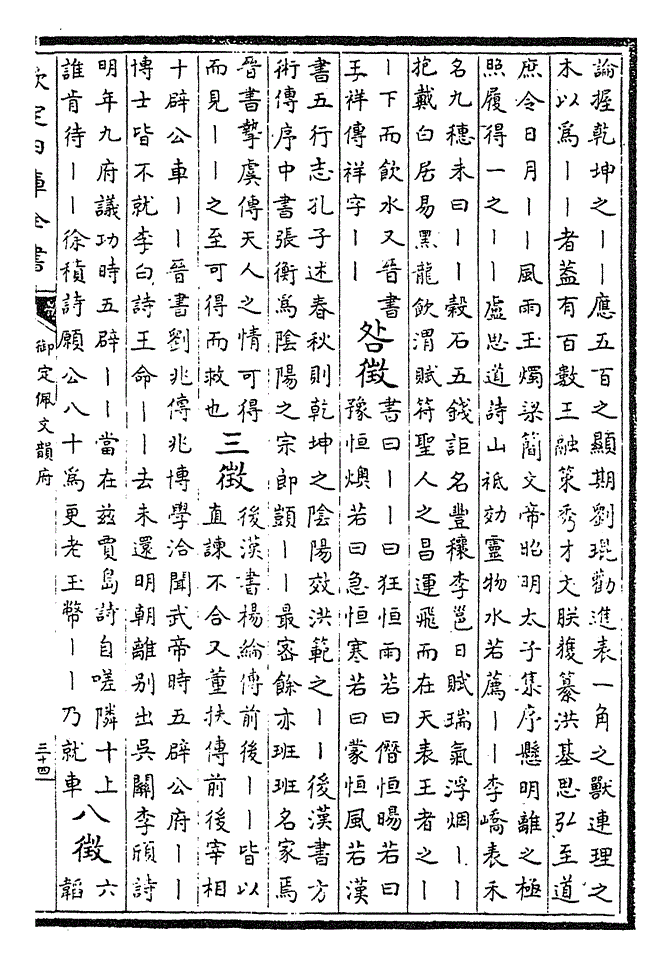 論握乾坤之丨丨應五百之顯期劉琨勸進表一角之獸連理之
木以爲丨丨者葢有百數王融策秀才文朕䕶纂洪基思弘至道
庶令日月丨丨風雨玉燭梁簡文帝昭明太子集序懸明離之極
照履得一之丨丨盧思道詩山祗効靈物水若薦丨丨李嶠表禾
名九穗未曰丨丨穀石五錢詎名豐穰李邕日賦瑞氣浮烟丨丨
抱戴白居易黑龍飲渭賦符聖人之昌運飛而在天表王者之丨
丨下而飲水又晉書
王祥傳祥字丨丨
咎徵
書曰丨丨曰狂恒雨若曰僭恒暘若曰
豫恒燠若曰急恒寒若曰蒙恒風若漢
書五行志孔子述春秋則乾坤之陰陽效洪範之丨丨後漢書方
術傳序中書張衡爲陰陽之宗郎顗丨丨最密餘亦班班名家焉
晉書摯虞傳天人之情可得
而見丨丨之至可得而救也
三徵
後漢書楊綸傳前後丨丨皆以
直諫不合又董扶傳前後宰相
十辟公車丨丨晉書劉兆傳兆博學洽聞武帝時五辟公府丨丨
博士皆不就李白詩王命丨丨去未還明朝離别出吳關李頎詩
明年九府議功時五辟丨丨當在兹賈島詩自嗟隣十上
誰肯待丨丨徐積詩願公八十爲更老玉幣丨丨乃就車
八徵
六
韜
欽定四庫全書
御定佩文韻府
三十四